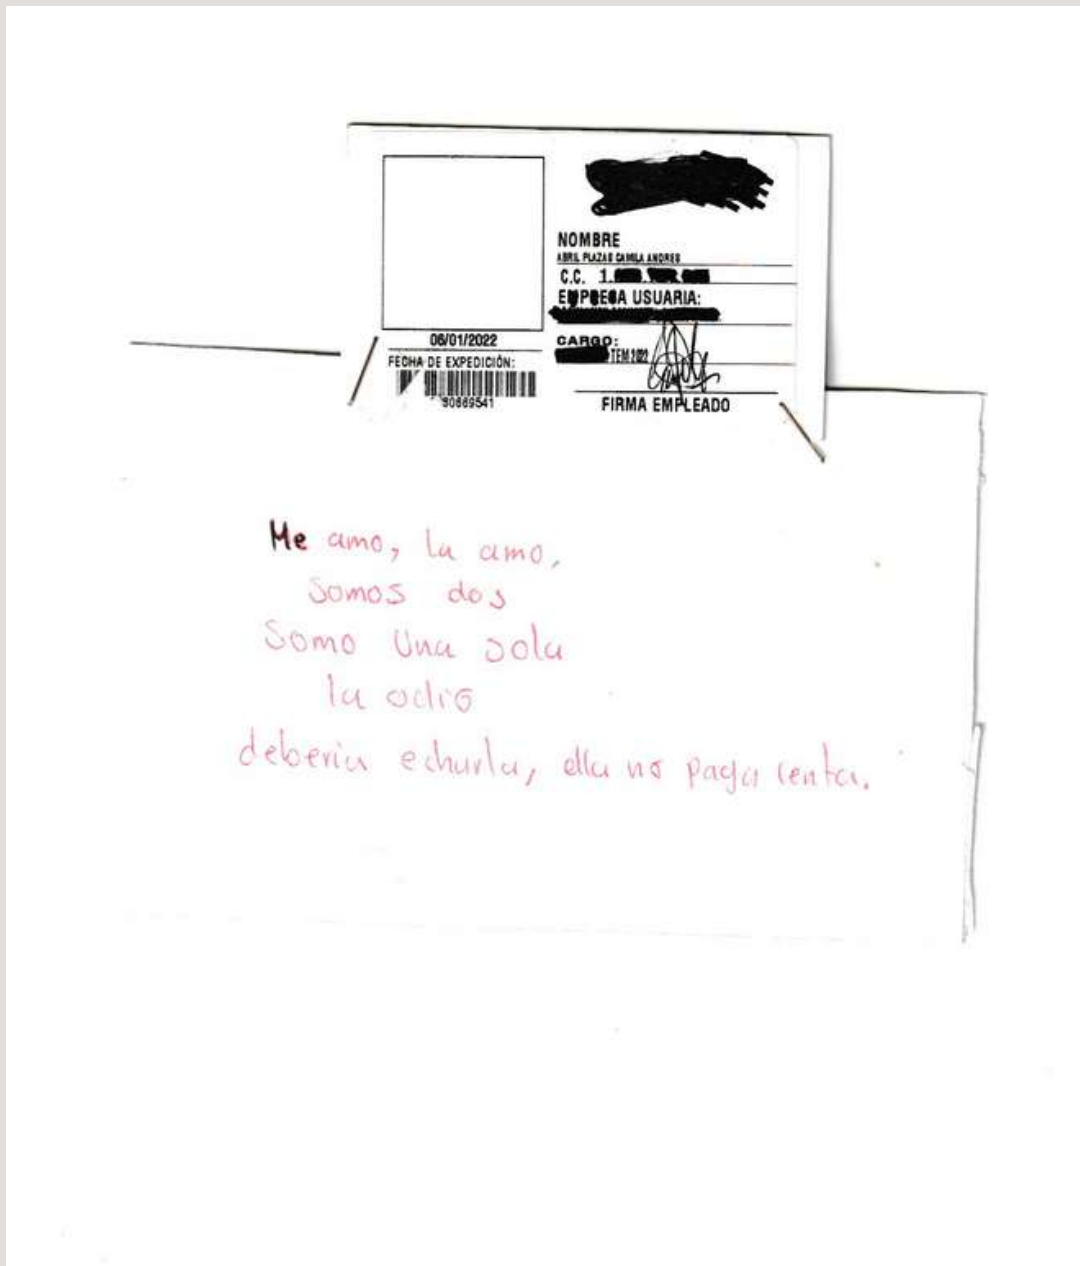 NOMBRE
ABRIL PLAZAS CAMILA ANDRES
C.C. 1.
EMPRESA USUARIA:
06/01/2022
CARGO:
TEM 2022
FECHA DE EXPEDICIÓN:
30669541
FIRMA EMPLEADO
Me amo, la amo,
Somos dos
Somo Una sola
la odio
deberia echarla, ella no paga renta.